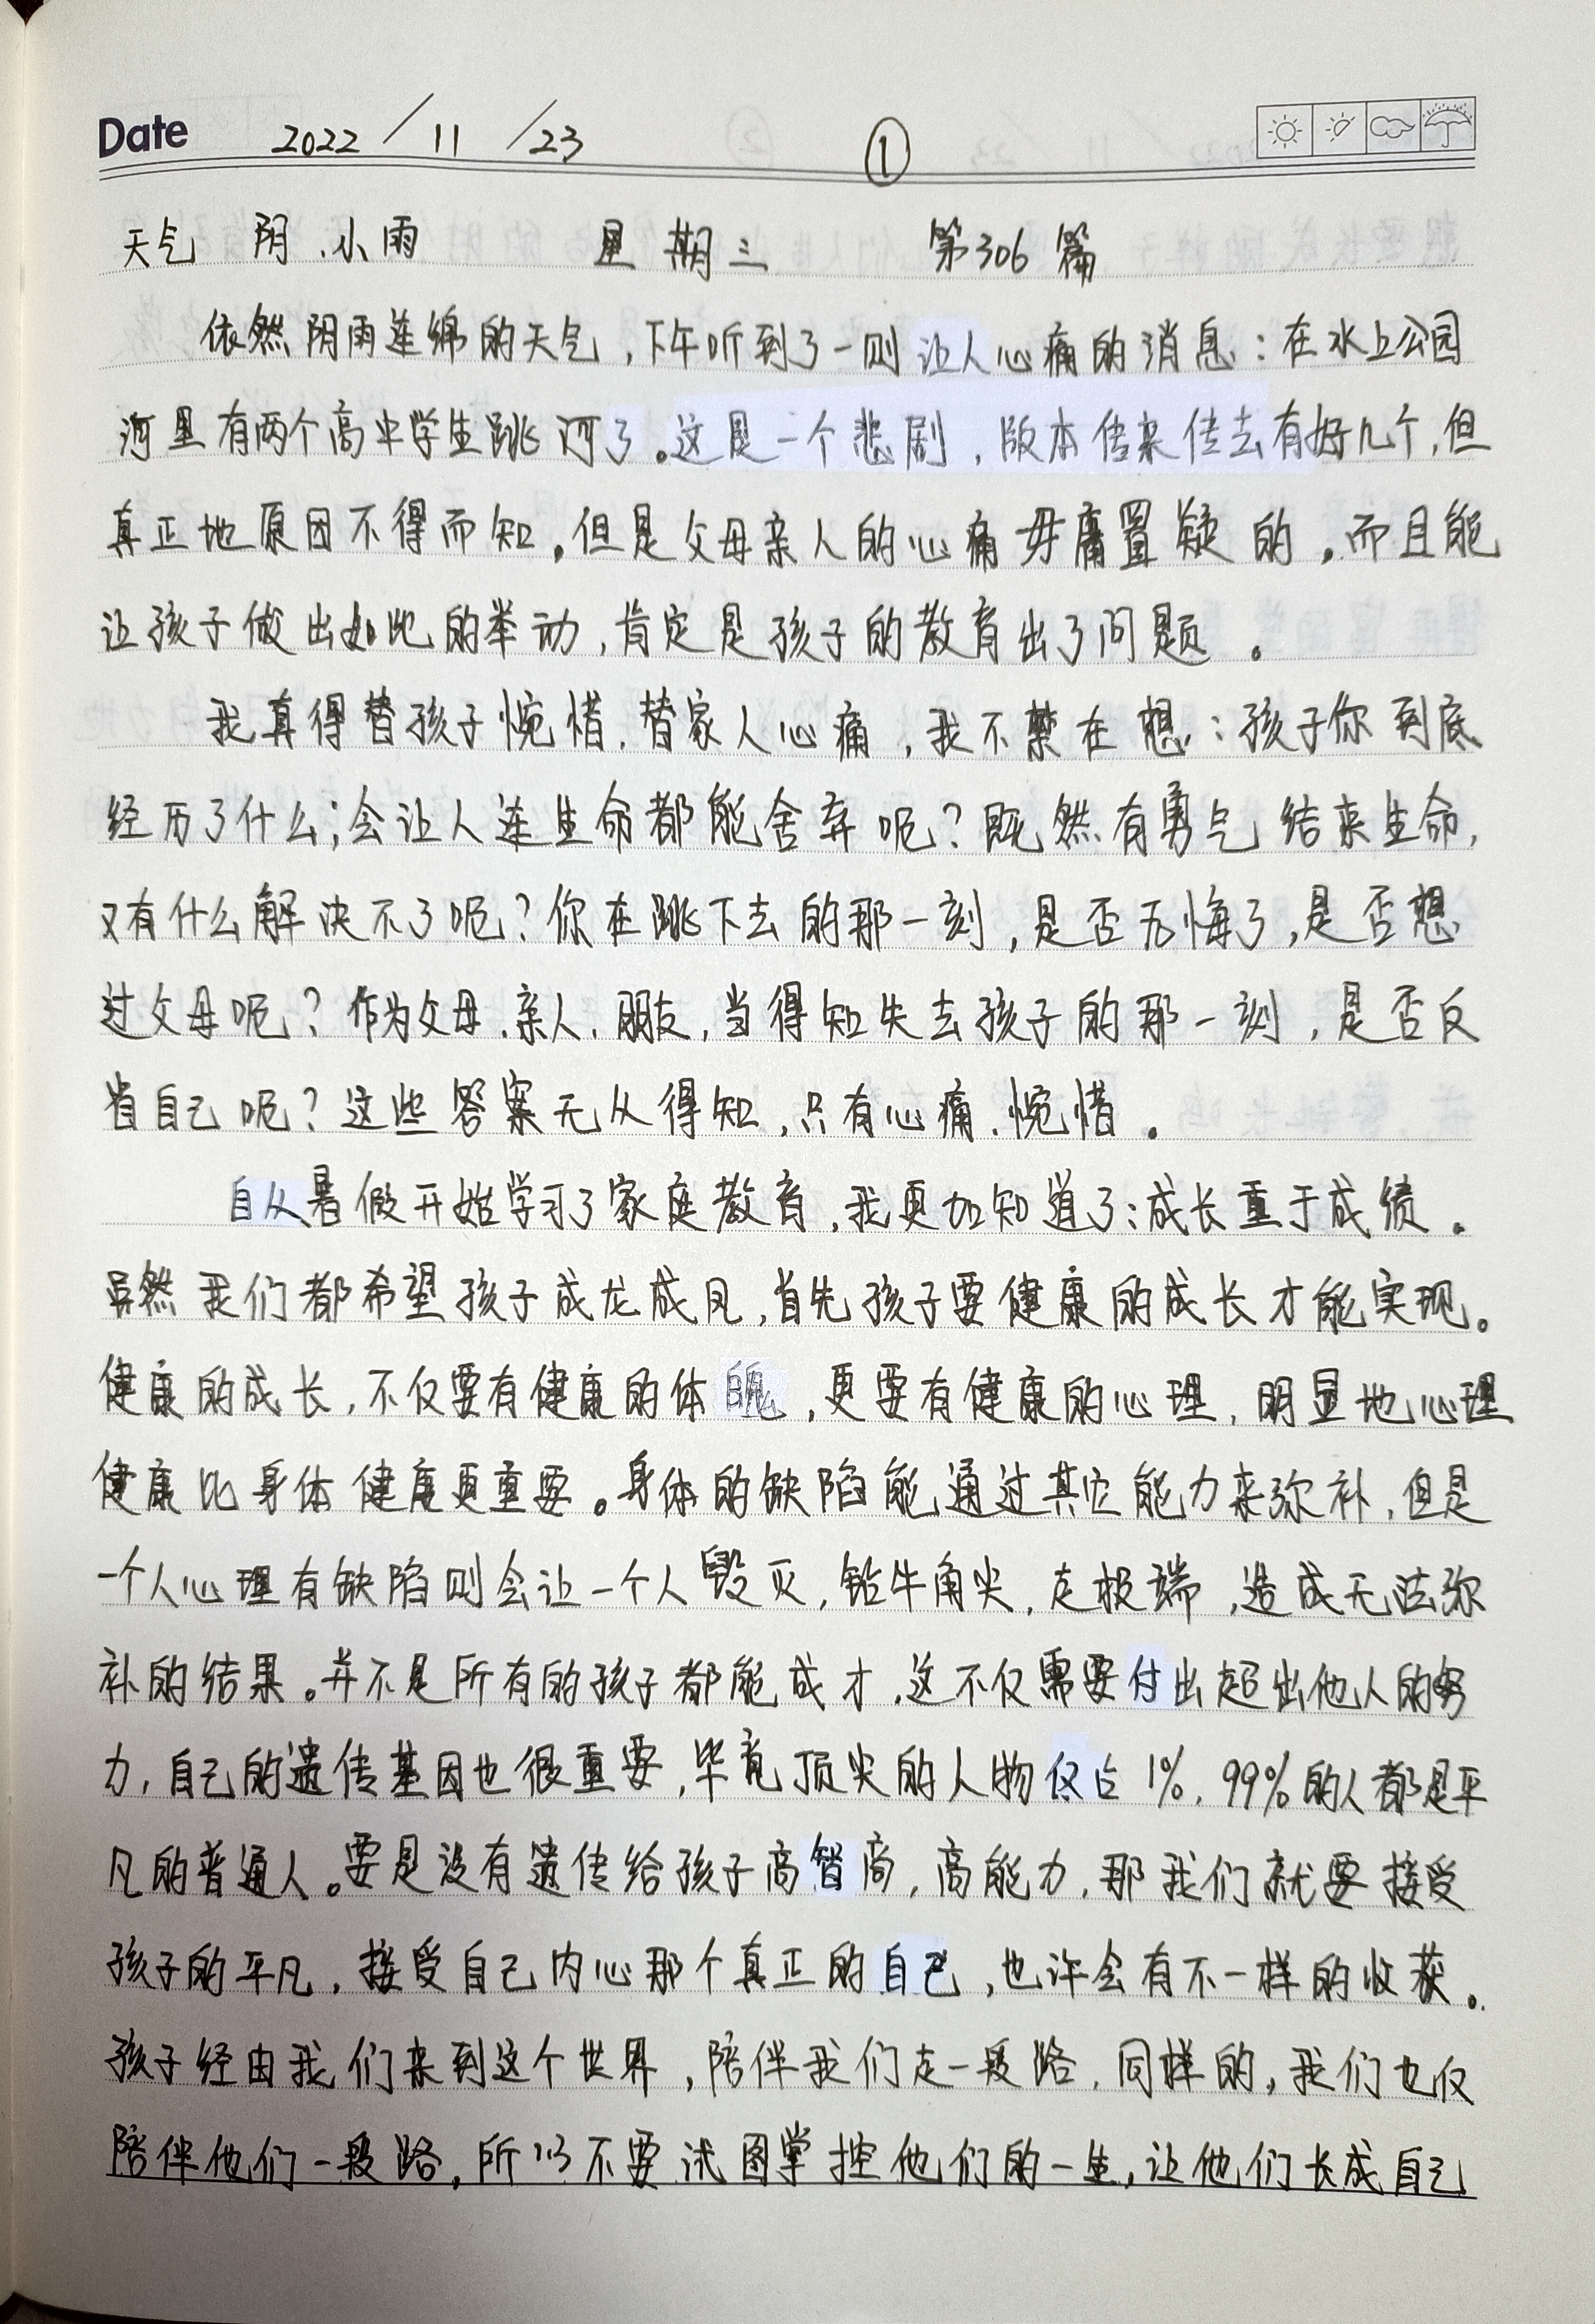 Date 2022 / 11 / 23 ①
天气 阴.小雨 星期三 第306篇
依然阴雨连绵的天气,下午听到了一则让人心痛的消息:在水上公园
河里有两个高中学生跳河了。这是一个悲剧,版本传来传去有好几个,但
真正地原因不得而知。但是父母亲人的心痛毋庸置疑的。而且能
让孩子做出如此的举动,肯定是孩子的教育出了问题。
我真得替孩子惋惜.替家人心痛,我不禁在想:孩子你到底
经历了什么;会让人连生命都能舍弃呢?既然有勇气结来生命,
又有什么解决不了呢?你在跳下去的那一刻,是否无悔了,是否想
过父母呢?作为父母.亲人.朋友,当得知失去孩子的那一刻,是否反
省自己呢?这些答案无从得知,只有心痛.惋惜。
自从暑假开始学习了家庭教育,我更加知道了:成长重于成绩。
虽然我们都希望孩子成龙成凤,首先孩子要健康的成长才能实现。
健康的成长,不仅要有健康的体魄,更要有健康的心理,明显地心理
健康比身体健康更重要。身体的缺陷能通过其它能力来弥补,但是
一个人心理有缺陷则会让一个人毁灭,钻牛角尖,走极端,造成无法弥
补的结果。并不是所有的孩子都能成才,这不仅需要付出超出他人的努
力,自己的遗传基因也很重要,毕竟顶尖的人物仅占1%,99%的人都是平
凡的普通人。要是没有遗传给孩子高智商,高能力,那我们就要接受
孩子的平凡,接受自己内心那个真正的自己,也许会有不一样的收获。
孩子经由我们来到这个世界,陪伴我们走一段路,同样的,我们也仅
陪伴他们一段路,所以不要试图掌控他们的一生,让他们长成自己